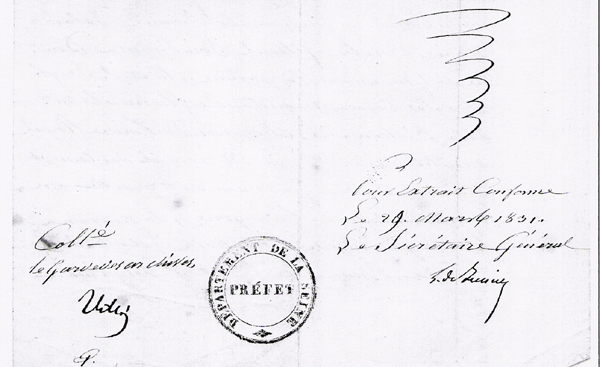 Pour Extrait Conforme
Le 29 Mars 1831.
Le Sécrétaire Général
Collé
le Garde des archives
DÉPARTEMENT DE LA SEINE
PRÉFET